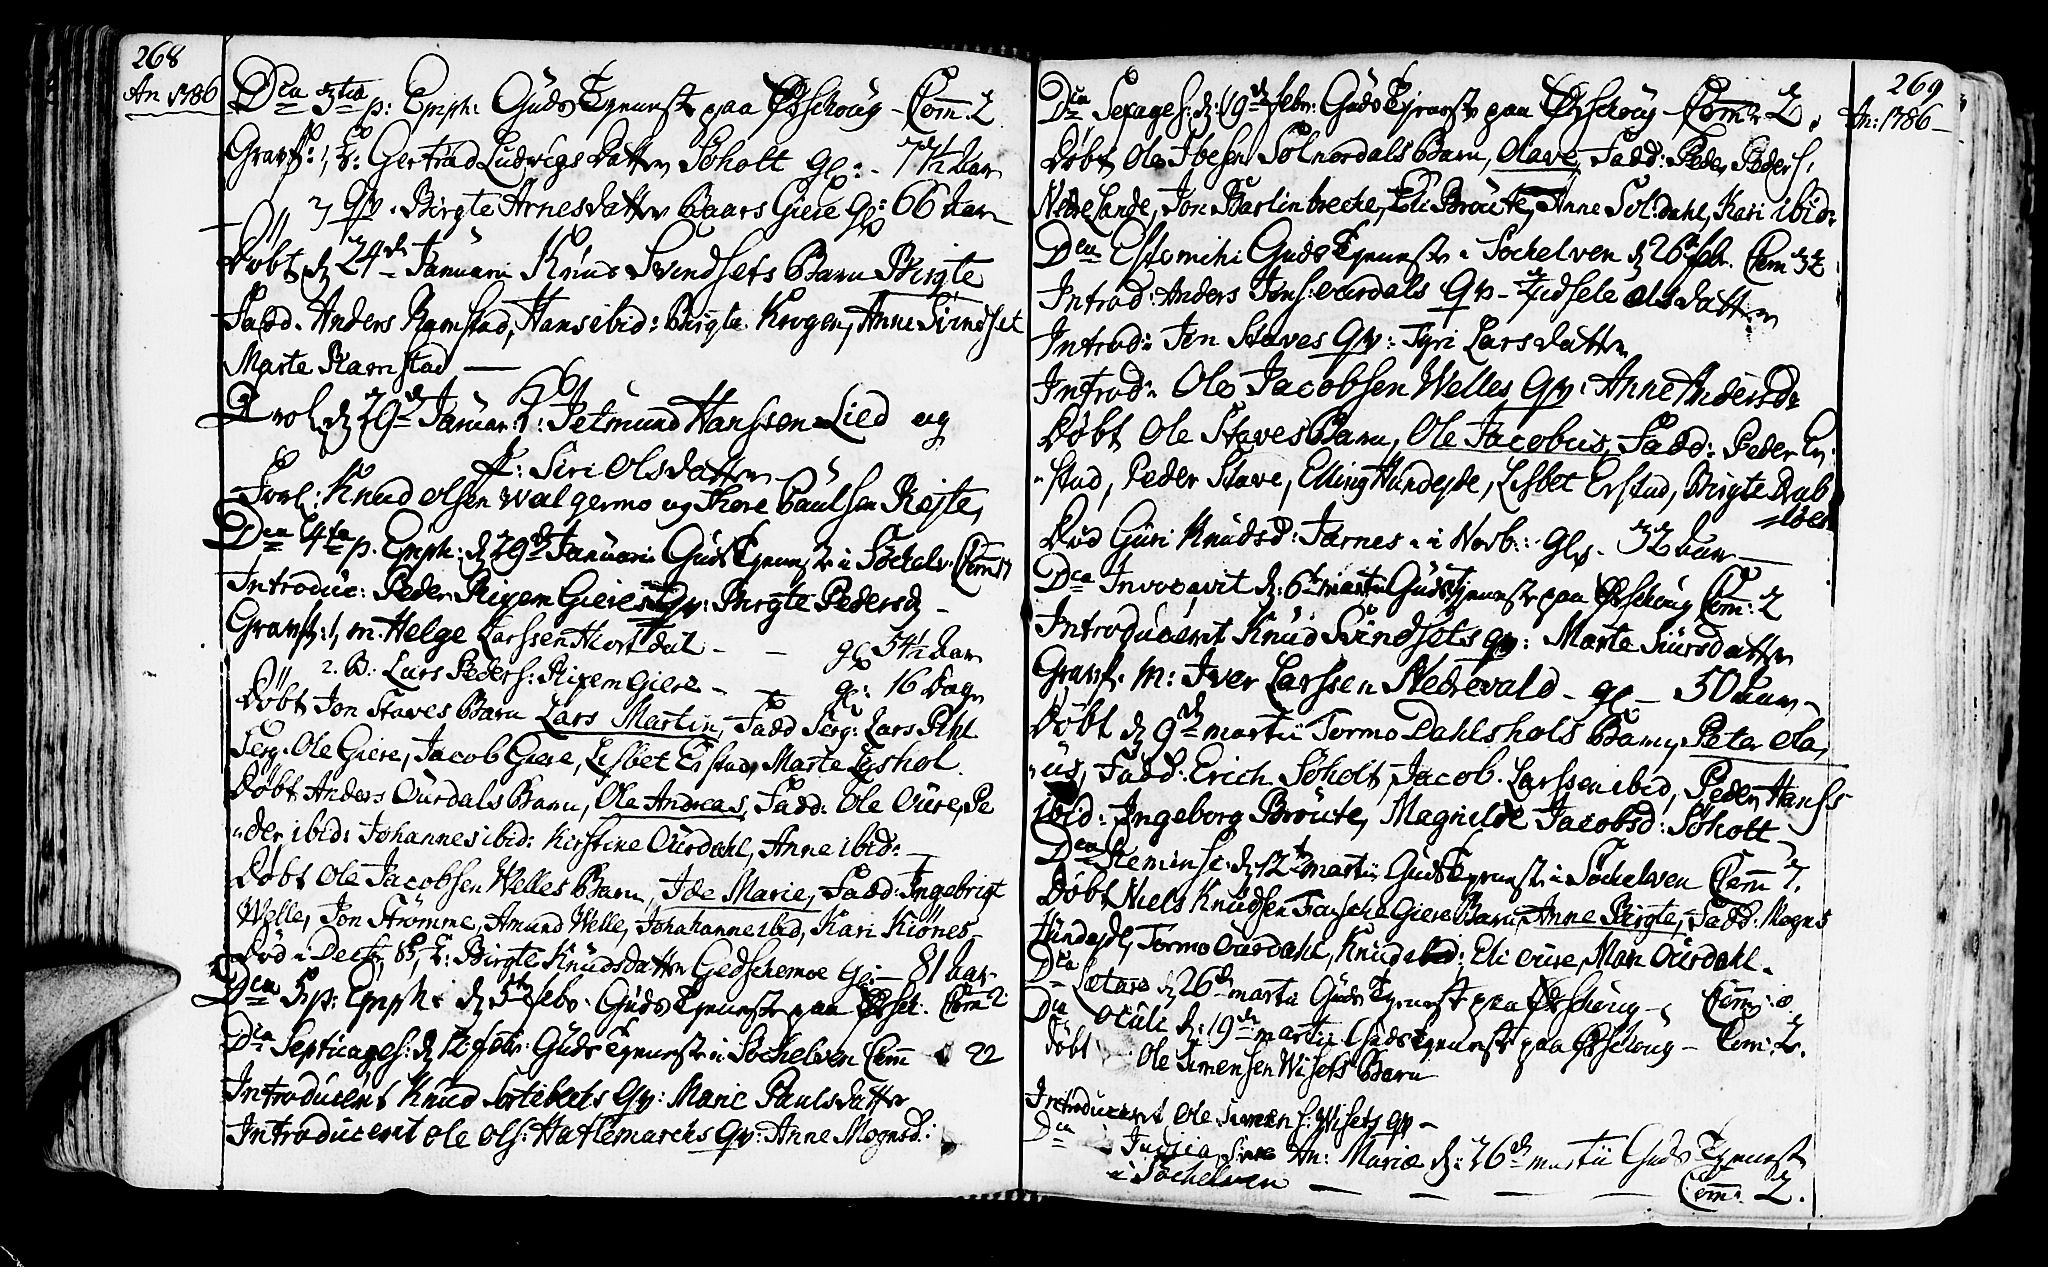 268
An 1786
Dca 3tia p: Epiph: Guds Tjeneste paa Ørschoug - Com: 2
Graff: 1, K: Gertrud Ludvigs Datter Søholt gl: 71½ Aar
2 Qv. Birgte Arnesdatter Baars Giere gl: 66 Aar
Døbt d 24de Januari Knud Svindsets Barn Birgte
Fadd. Anders Ramstad, Hans ibid: Birgte Krogen, Anne Svindset
Marte Ramstad
Trol. d 29de Januar: K: Jetmund Hanssen Lied og
Siri Olsdatter
Forl: Knud Olsen Walgermo og Thore Paulsen Rejte,
Dca 4ta p. Epiph: d 29de Januari Guds Tjeneste i Søchelv: Com 17
Introduc: Peder Rixem Gieres Qv: Birgte Pedersd
Graff: 1, m. Helge Larssen Hiortdal - - gl 54½ Aar
2. B: Lars Peders: Rixem Giere - gl: 16 Dage
Døbt Jon Staves Barn Lars Martin, Fadd Serg: Lars Pihl
Serg. Ole Giere, Jacob Giere, Lisbet Erstad, Marte Lyshol.
Døbt Anders Ourdals Barn, Ole Andreas, Fadd: Ole Oure, Pe
der ibid: Johannes ibid: Kirstine Ourdahl, Anne ibid:
Døbt Ole Jacobsen Welles Barn, Ide Marie, Fadd: Ingebrigt
Welle, Jon Strømme, Amund Welle, Johanne ibid, Kari Kiønes
Død i K: Birgte Knudsdatter Gedschemoe gl: 81 Aar
Dca 5 p: Epiph: d 5te febr: Guds Tjeneste paa Ørsch: Com 2
Dca Septuages: d 12 febr: Guds Tjeneste i Søchelven Com 22
Introducent Knud Sortebechs Qv: Marie Paulsdatter
Introducent Ole Ols: Hatlemarchs Qv: Anne Mognsd:
269
An: 1786
Dca Sexages: d: 19de febr: Guds Tjeneste paa Ørschoug Com: 2.
Døbt Ole Ibsen Solnørdals Barn, Olave, Fadd: Peder Peders.
Nedrelande, Jon Barlinbrecke, Eli Broute, Anne Sol:dahl, Kari ibid:
Dca Estomihi Guds Tjeneste i Søchelven d 26 febr. Com 32
Introd: Anders Jons: Ourdals Qv - Zidsele Olsdatter
Introd: Jon Staves Qv: Gyri Larsdatter
Introd: Ole Jacobsen Welles Qv: Anne Andersd:
Døbt Ole Staves Barn, Ole Jacobus, Fadd: Peder Er
stad, Peder Stave, Elling Hundejde, Lisbet Erstad, Birgte Dab
sloen
Død Guri Knudsd: Jarnes i Norb: gl. 32 Aar
Dca Invocavit d: 6te martii Guds Tjeneste paa Ørschoug Com: 2
Introducent Knud Svindsets qv: Marte Siursdatter
Graff. m: Iver Larssen Nedrevald - gl - 50 Aar
Døbt d 9de martii Tormo Dahlshols Barn, Peter Ola,
us, Fadd: Erich Søholt, Jacob Larssen ibid, Peder Hanss
ibid: Ingeborg Broute, Magnilde Jacobsd: Søholt
Dca Reminsc. d 12te martii Guds Tjeneste i Søchelven Com 7.
Døbt Niels Knudsen Fauske Giere Barn, Anne Birgte, Fadd: Mogns
Hundejde, Tormo Ourdahl, Knud ibid: Eli Oure, Mari Ourdahl.
Dca Lætare d 26de martii Guds Tjeneste paa Ørschoug - Com: 0.
Dca Oculi d: 19de martii Guds Tjeneste paa Ørschoug - Com: 2.
Døbt Ole Simensen Wisets Barn
Introducent Ole Simens: Wisets qv -
Dca Judica sive An: Mariæ d: 26de martii Guds Tjeneste
i Søchelven - - - - Com: 2.